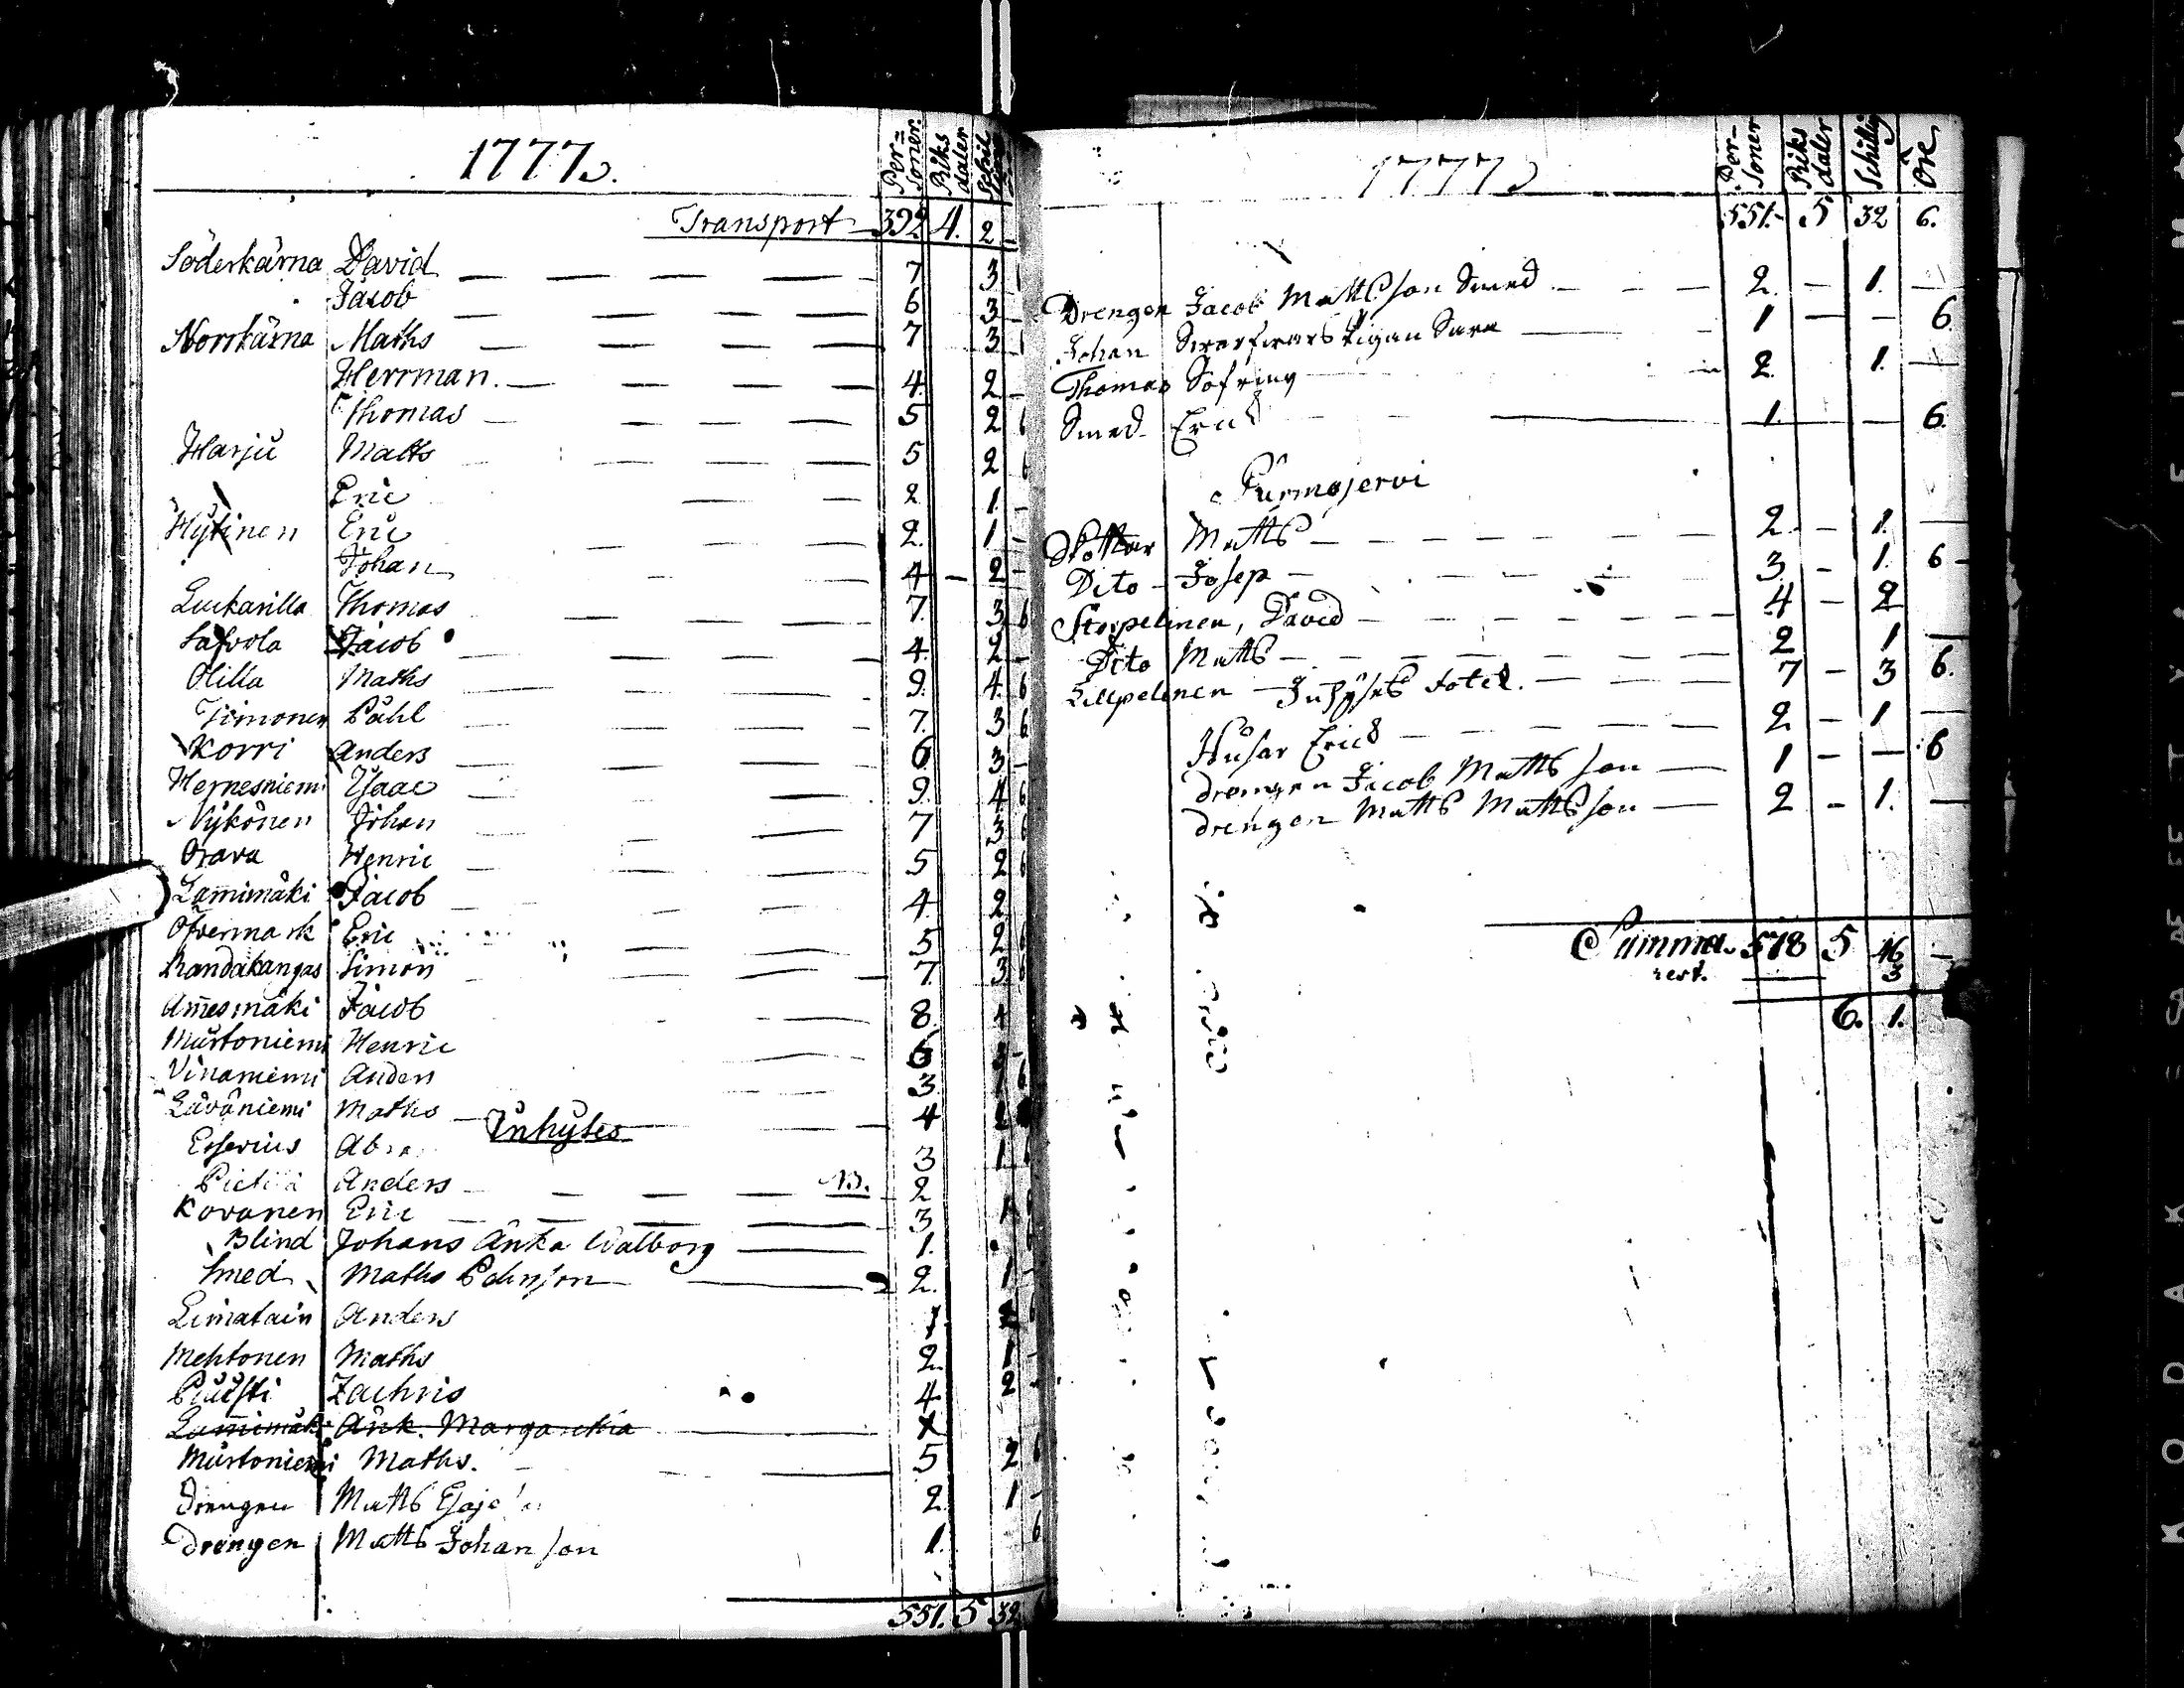 1777.
Per= soner. Riks daler Schil
Transport 392 4. 2 -
Söderkärna David 7 3 6
Jacob 6 3 -
Norrkärna Maths 7 3 6
Herrman. 4. 2 -
Thomas 5 2 6
Harju Matts 5 2 6
Eric 2 1 -
Hytinen Eric 2. 1 -
Johan 4 - 2 -
Luckarilla Thomas 7. 3 6
Safvola Jacob 4. 2 -
Olilla Maths 9. 4. 6
Simonen Påhl 7. 3 6
Korri Anders 6 3 -
Hernesniemi Isaac 9. 4 6
Nykönen Johan 7 3 6
Orava Henric 5 2 6
Lam̄imäki Jacob 4. 2
Ofvermark Eric 5 2 6
Randakangas Simon 7. 3 6
Am̄esmäki Jacob 8. 4
Mustoniemi Henric 6 3 -
Vinaniemi Anders 3. 1 6
Laväniemi Maths 4 2
Inhyses
Esserius Abr 3 1 6
Pietilä Anders NB. 2
Kovanen Eric 3 1 6
Blind Johans Änka Walborg 1.
Smed Maths Påhlsson 2. 1 -
Limatain Anders
Mehtonen Maths 2. 1 -
Puusti Zachris 4 2 -
Lam̄imäki Änk. Margaretha
Mustoniemi Maths. 5 2 6
Drengen Matts 2. 1 -
Drengen Matts Johansson 1. 6
551. 5 32
1777
Per- soner Riks daler Schillig Öre
551.- 5 32 6.
Drengen Jacob Mattsson Smed 2. - 1. -
Johan pigan Sara 1 - - 6.
Thomas Sofring 2. 1. -
Smed Erics 1. - 6.
Purmojervi
Matts 2. - 1. -
Dito - Josep 3. - 1. 6 -
Storpelinen, David 4 - 2
Dito Matts 2 1 -
Lillpelinen - Inhyses Rotel. 7 - 3 6.
Husar Erics 2 - 1 -
Drengen Jacob Mattsson 1 - - 6
Drengen Matts Mattsson 2 - 1. -
Summa 578 5 46 -
rest. 3
6. 1.
KODAK